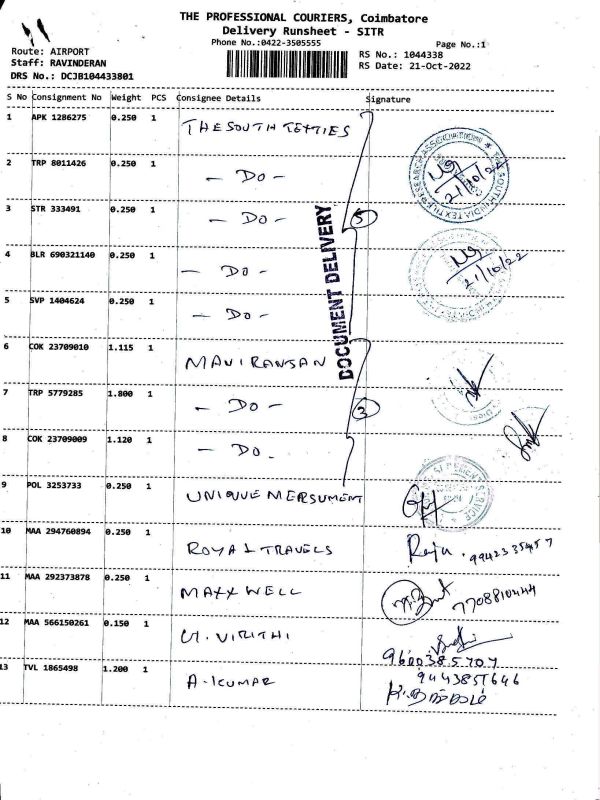 THE PROFESSIONAL COURIERS, Coimbatore
Delivery Runsheet - SITR
Phone No.:0422-3505555
Page No.:1
Route: AIRPORT
RS No.: 1044338
Staff: RAVINDERAN
RS Date: 21-Oct-2022
DRS No.: DCJB104433801
S No Consignment No Weight PCS Consignee Details Signature
1 APK 1286275 0.250 1 THE SOUTH TEXTIES
2 TRP 8011426 0.250 1 - DO - 21/10/22
3 STR 333491 0.250 1 - DO - 5
4 BLR 690321140 0.250 1 - DO - 21/10/22
5 SVP 1404624 0.250 1 - DO -
DOCUMENT DELIVERY
6 COK 23709010 1.115 1
7 TRP 5779285 1.800 1 - DO - 3
8 COK 23709009 1.120 1 - DO.
9 POL 3253733 0.250 1 UNIQUE MERSUMENT
10 MAA 294760894 0.250 1 ROYAL TRAVELS Raju. 9942335457
11 MAA 292373878 0.250 1 MAXX WELL
12 MAA 566150261 0.150 1 9600385707
13 TVL 1865498 1.200 1 A. KUMAR 9443857646